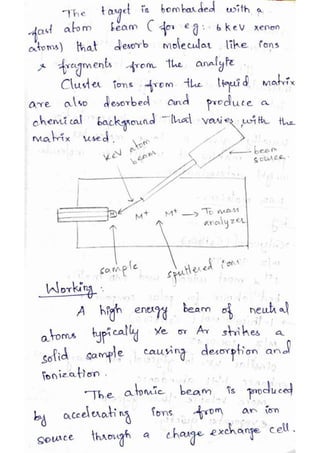 The target is bombarded with a
fast atom beam (for eg: 6 keV xenon
atoms) that desorb molecular like ions
& fragments from the analyte.
Cluster ions from the liquid matrix
are also desorbed and produce a
chemical background that varies with the
matrix used.
keV atom
beam
beam
source
M+ M+ → To mass
analyzer
sample
sputtered ions
Working :
A high energy beam of neutral
atoms typically Xe or Ar strikes a
solid sample causing desorption and
ionization.
The atomic beam is produced
by accelerating ions from an ion
source through a charge exchange cell.